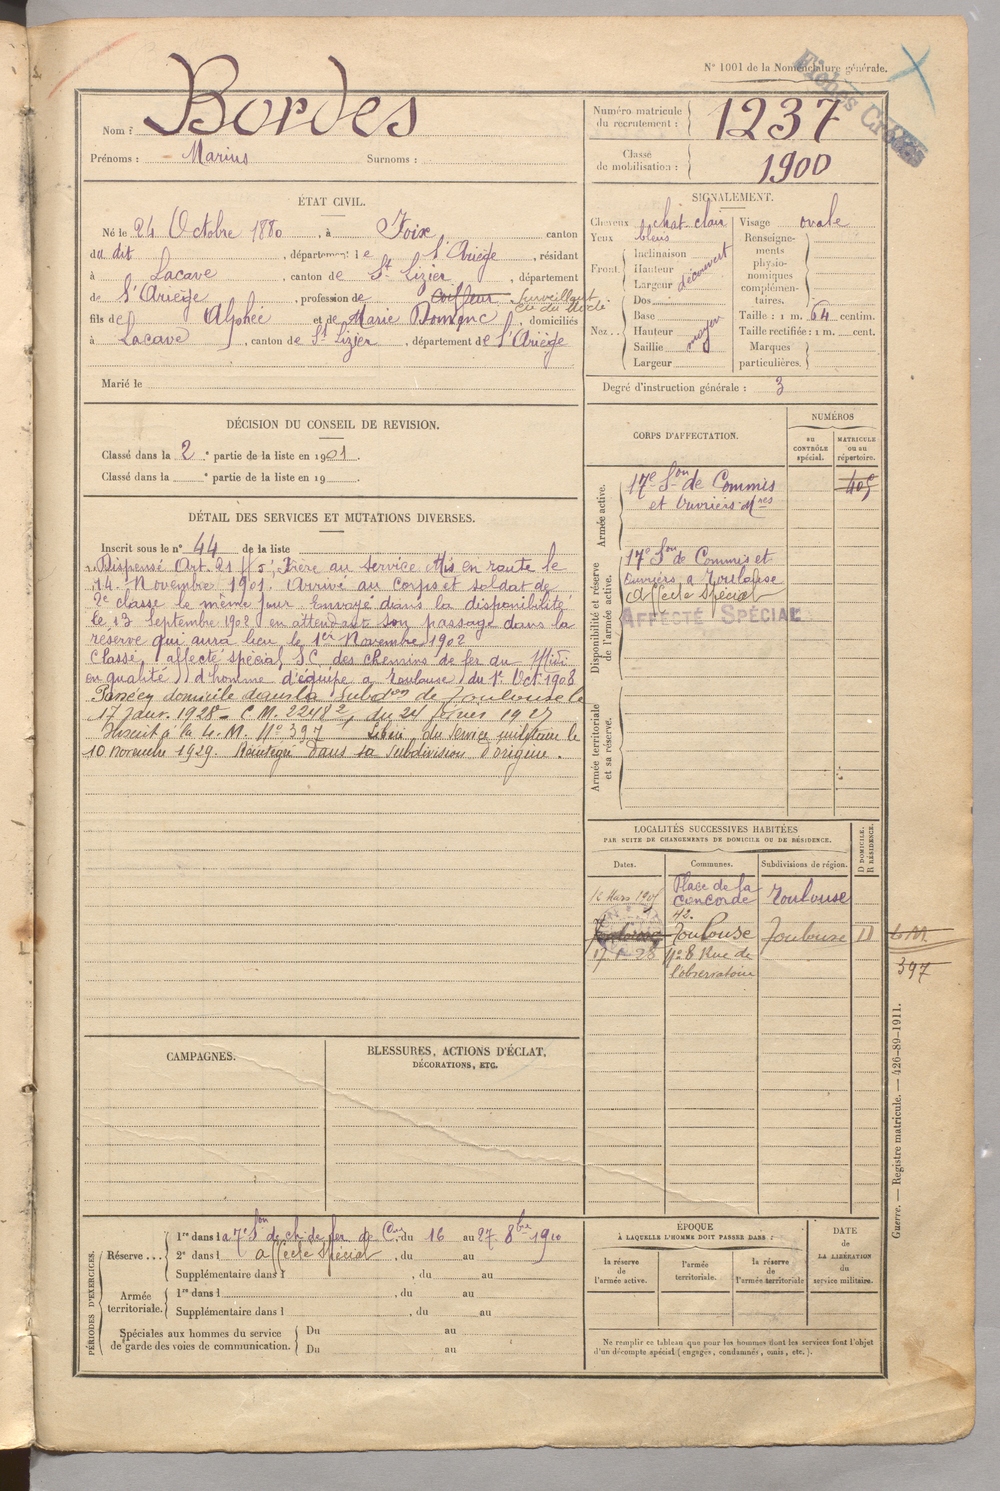 N° 1001 de la Nomenclature générale.
Fiches Crées
Nom : Bordes
Prénoms : Marius Surnoms :
Numéro matricule du recrutement : 1237
Classe de mobilisation : 1900
ÉTAT CIVIL.
Né le 24 Octobre 1880, à Foix canton
du dit, département de l'Ariège, résidant
à Lacave, canton de St Lizier, département
de l'Ariège, profession de coiffeur Surveillant
fils de Alphée et de Marie Domenc, domiciliés
à Lacave, canton de St Lizier, département de l'Ariège
Marié le
SIGNALEMENT.
Cheveux chat. clair
Yeux bleus
Front
Inclinaison
Hauteur
Largeur
découvert
Nez
Dos
Base
Hauteur
Saillie
Largeur
moyen
Visage ovale
Renseignements physionomiques complémentaires.
Taille : 1 m. 64 centim.
Taille rectifiée : 1 m. cent.
Marques particulières.
Degré d'instruction générale : 3
DÉCISION DU CONSEIL DE REVISION.
Classé dans la 2e partie de la liste en 1901.
Classé dans la e partie de la liste en 19
DÉTAIL DES SERVICES ET MUTATIONS DIVERSES.
Inscrit sous le n° 44 de la liste
Dispensé Art. 21 Frère au service Mis en route le
14 Novembre 1901. Arrivé au corps et soldat de
2e classe le même jour. Envoyé dans la disponibilité
le 13 Septembre 1902 en attendant son passage dans la
réserve qui aura lieu le 1er Novembre 1902
Classé affecté spécial S.C. des chemins de fer du Midi
en qualité d'homme d'équipe à Toulouse du 1er Oct 1908
Passé en domicile dans la Subdon de Toulouse le
17 Janv. 1928 - C.M. du 24 1927
Inscrit à la L.M. N° 397 Libéré du service militaire le
10 novembre 1929. Réintégré dans sa subdivision d'origine.
CORPS D'AFFECTATION.
NUMÉROS
au contrôle spécial.
MATRICULE ou au répertoire.
Armée active.
17e Son de Commis
et Ouvriers Mres
405
Disponibilité et réserve de l'armée active.
17e Son de Commis et
Ouvriers, à Toulouse
Affecté spécial
AFFECTÉ SPÉCIAL
Armée territoriale et sa réserve.
LOCALITÉS SUCCESSIVES HABITÉES
PAR SUITE DE CHANGEMENTS DE DOMICILE OU DE RÉSIDENCE.
Dates. Communes. Subdivisions de région. D DOMICILE. R RÉSIDENCE.
Mars Place de la Concorde 42. Toulouse
Toulouse Toulouse D
17 1-28 N° 8 Rue de
l'observatoire
L.M.
397
CAMPAGNES.
BLESSURES, ACTIONS D'ÉCLAT,
DÉCORATIONS, ETC.
Guerre. — Registre matricule. — 426-89-1911.
PÉRIODES D'EXERCICES.
Réserve ...
1re dans la 7e Son de ch. de fer de Cne, du 16 au 27 8bre 1910
2e dans l affecté spécial, du au
Supplémentaire dans l , du au
Armée territoriale.
1re dans l , du au
Supplémentaire dans l , du au
Spéciales aux hommes du service
de garde des voies de communication.
Du au
Du au
ÉPOQUE
À LAQUELLE L'HOMME DOIT PASSER DANS :
la réserve de l'armée active.
l'armée territoriale.
la réserve de l'armée territoriale
DATE de LA LIBÉRATION du service militaire.
Ne remplir ce tableau que pour les hommes dont les services font l'objet
d'un décompte spécial (engagés, condamnés, omis, etc.).